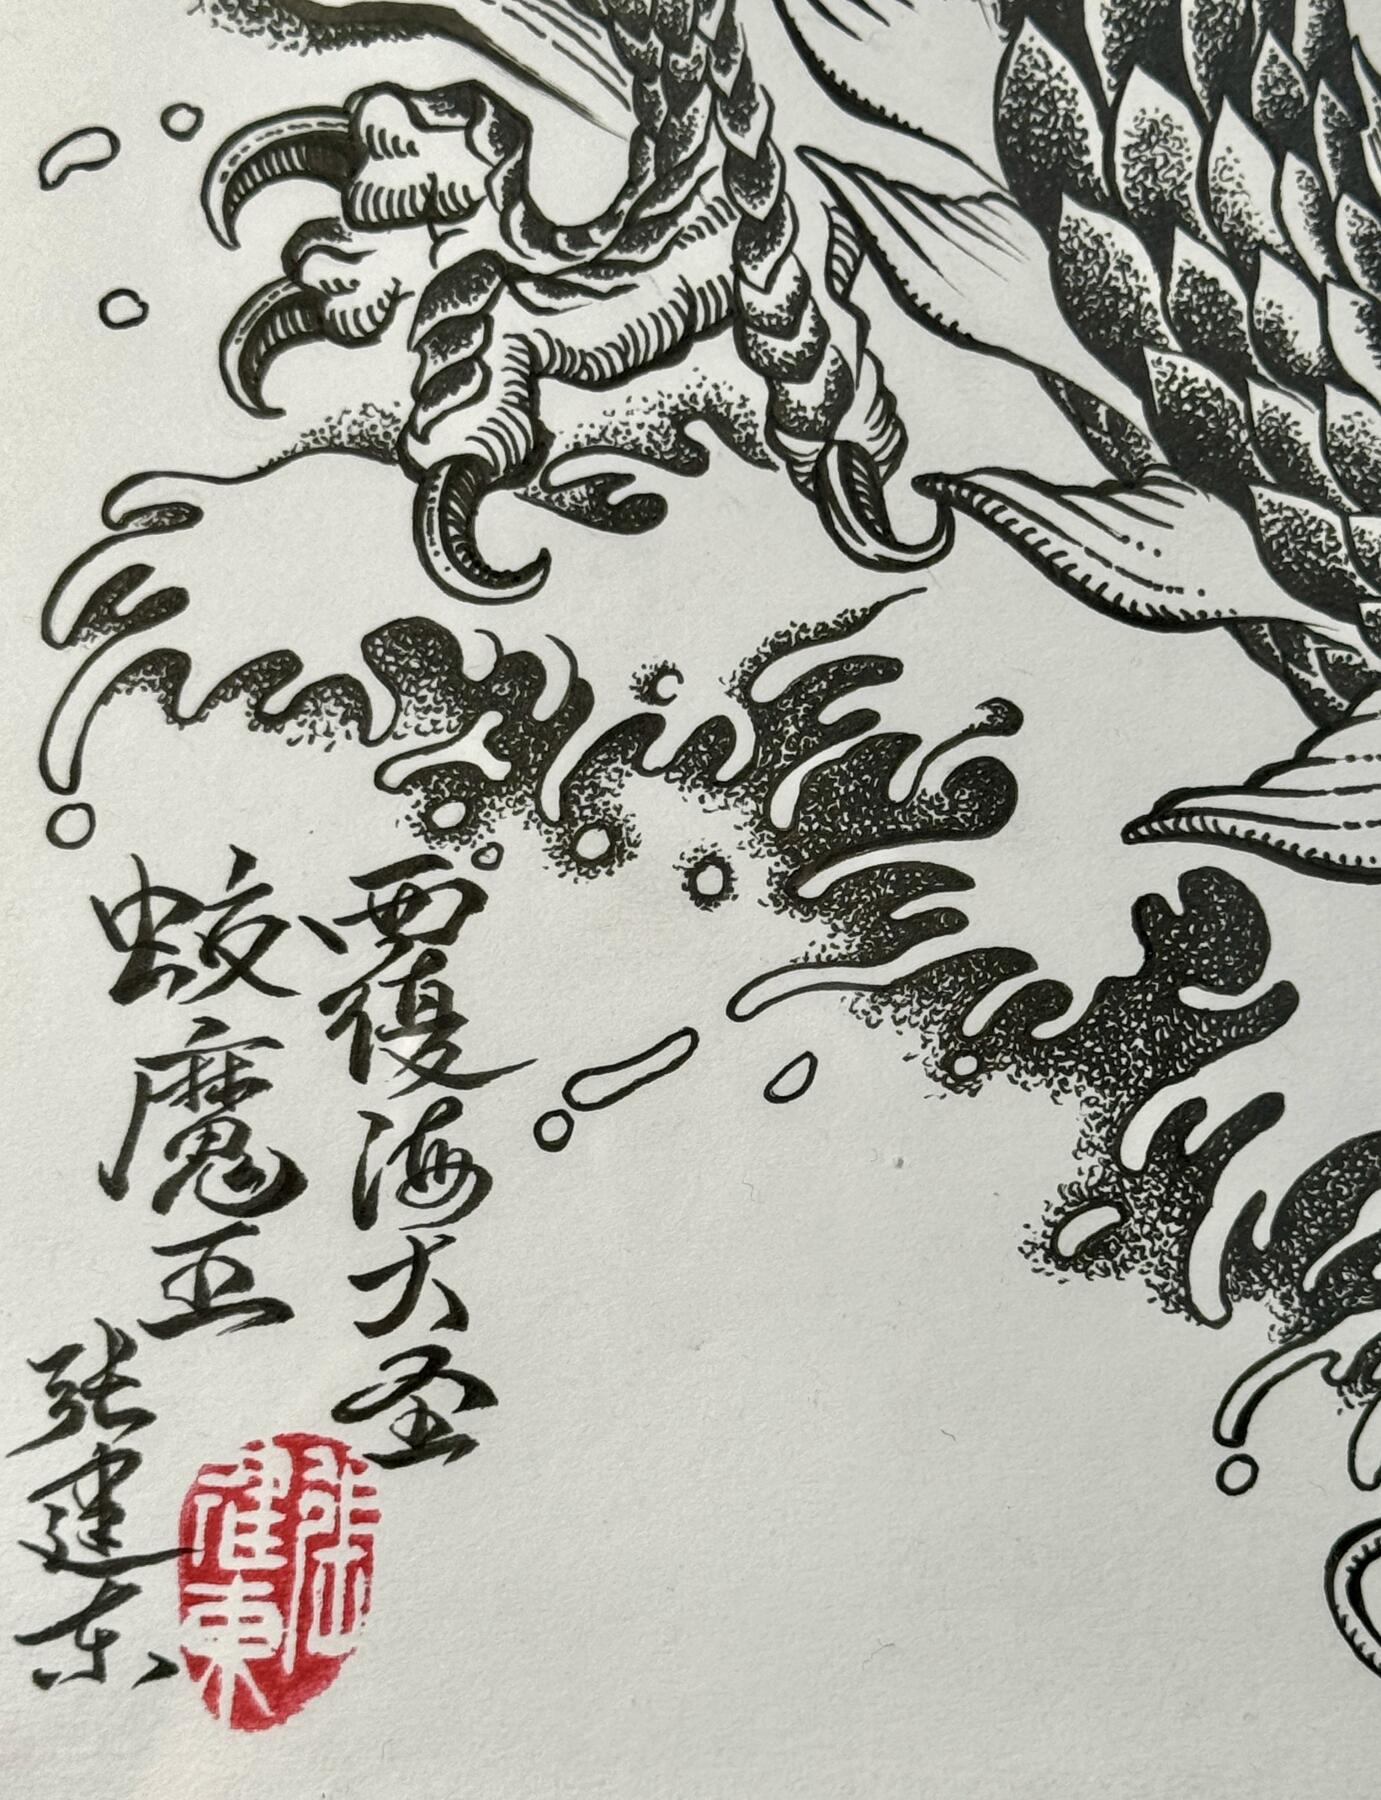 覆海大圣
蛟魔王
张建东
張建東